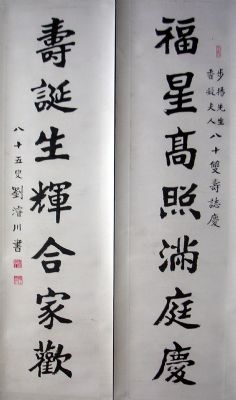 福星高照滿庭慶
步揚先生
香凝夫人
八十雙壽誌慶
壽誕生輝合家歡
八十五叟劉濬川書